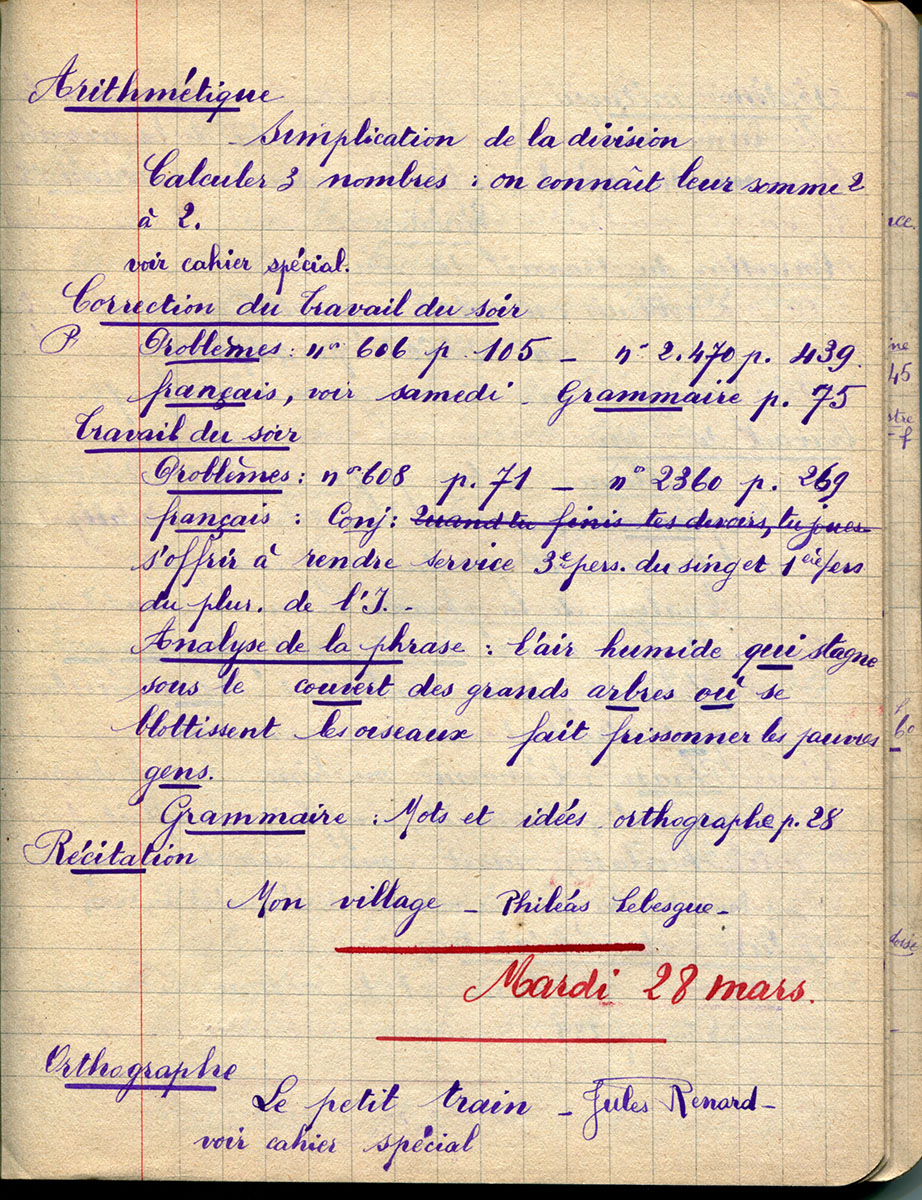 Arithmétique
Simplication de la division
Calculer 3 nombres : on connaît leur somme 2
à 2.
voir cahier spécial.
Correction du travail du soir
P Problèmes : n° 606 p. 105 _ n° 2.470 p. 439.
français, voir samedi _ Grammaire p. 75
Travail du soir
Problèmes : n° 608 p. 71 _ n° 2360 p. 269
français : Conj : Quand tu finis tes devoirs, tu joues
s'offrir à rendre service 3e pers. du sing et 1ère pers
du plur. de l'I. -
Analyse de la phrase : l'air humide qui stagne
sous le couvert des grands arbres où se
blottissent les oiseaux fait frissonner les pauvres
gens.
Grammaire : Mots et idées orthographe p. 28
Récitation
Mon village _ Philéas Lebesgue _
Mardi 28 mars.
Orthographe
Le petit train _ Jules Renard _
voir cahier spécial